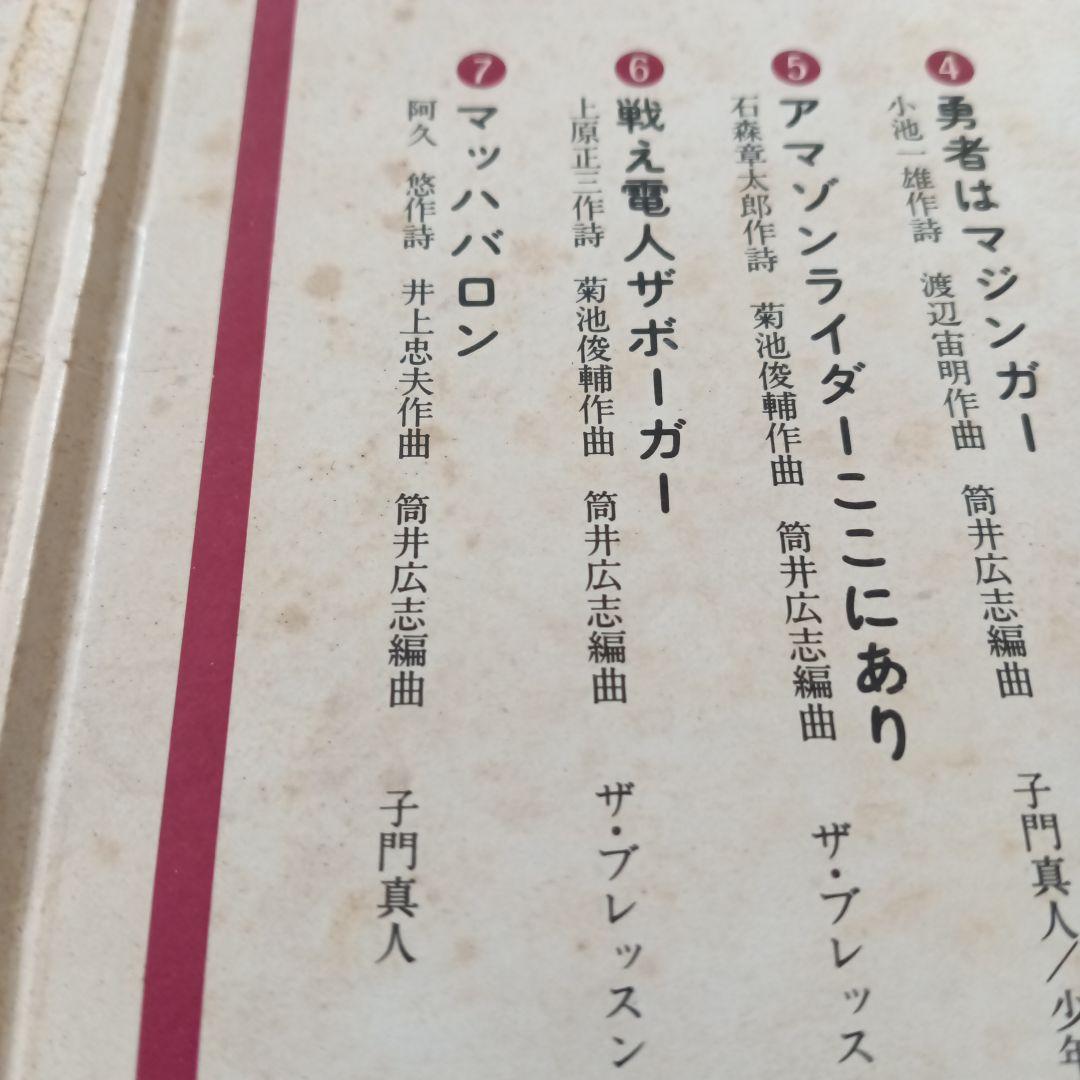 ❹勇者はマジンガー
小池一雄作詩 渡辺宙明作曲 筒井広志編曲 子門真人/少年
❺アマゾンライダーここにあり
石森章太郎作詩 菊池俊輔作曲 筒井広志編曲 ザ・ブレッス
❻戦え電人ザボーガー
上原正三作詩 菊池俊輔作曲 筒井広志編曲 ザ・ブレッスン
❼マッハバロン
阿久 悠作詩 井上忠夫作曲 筒井広志編曲 子門真人